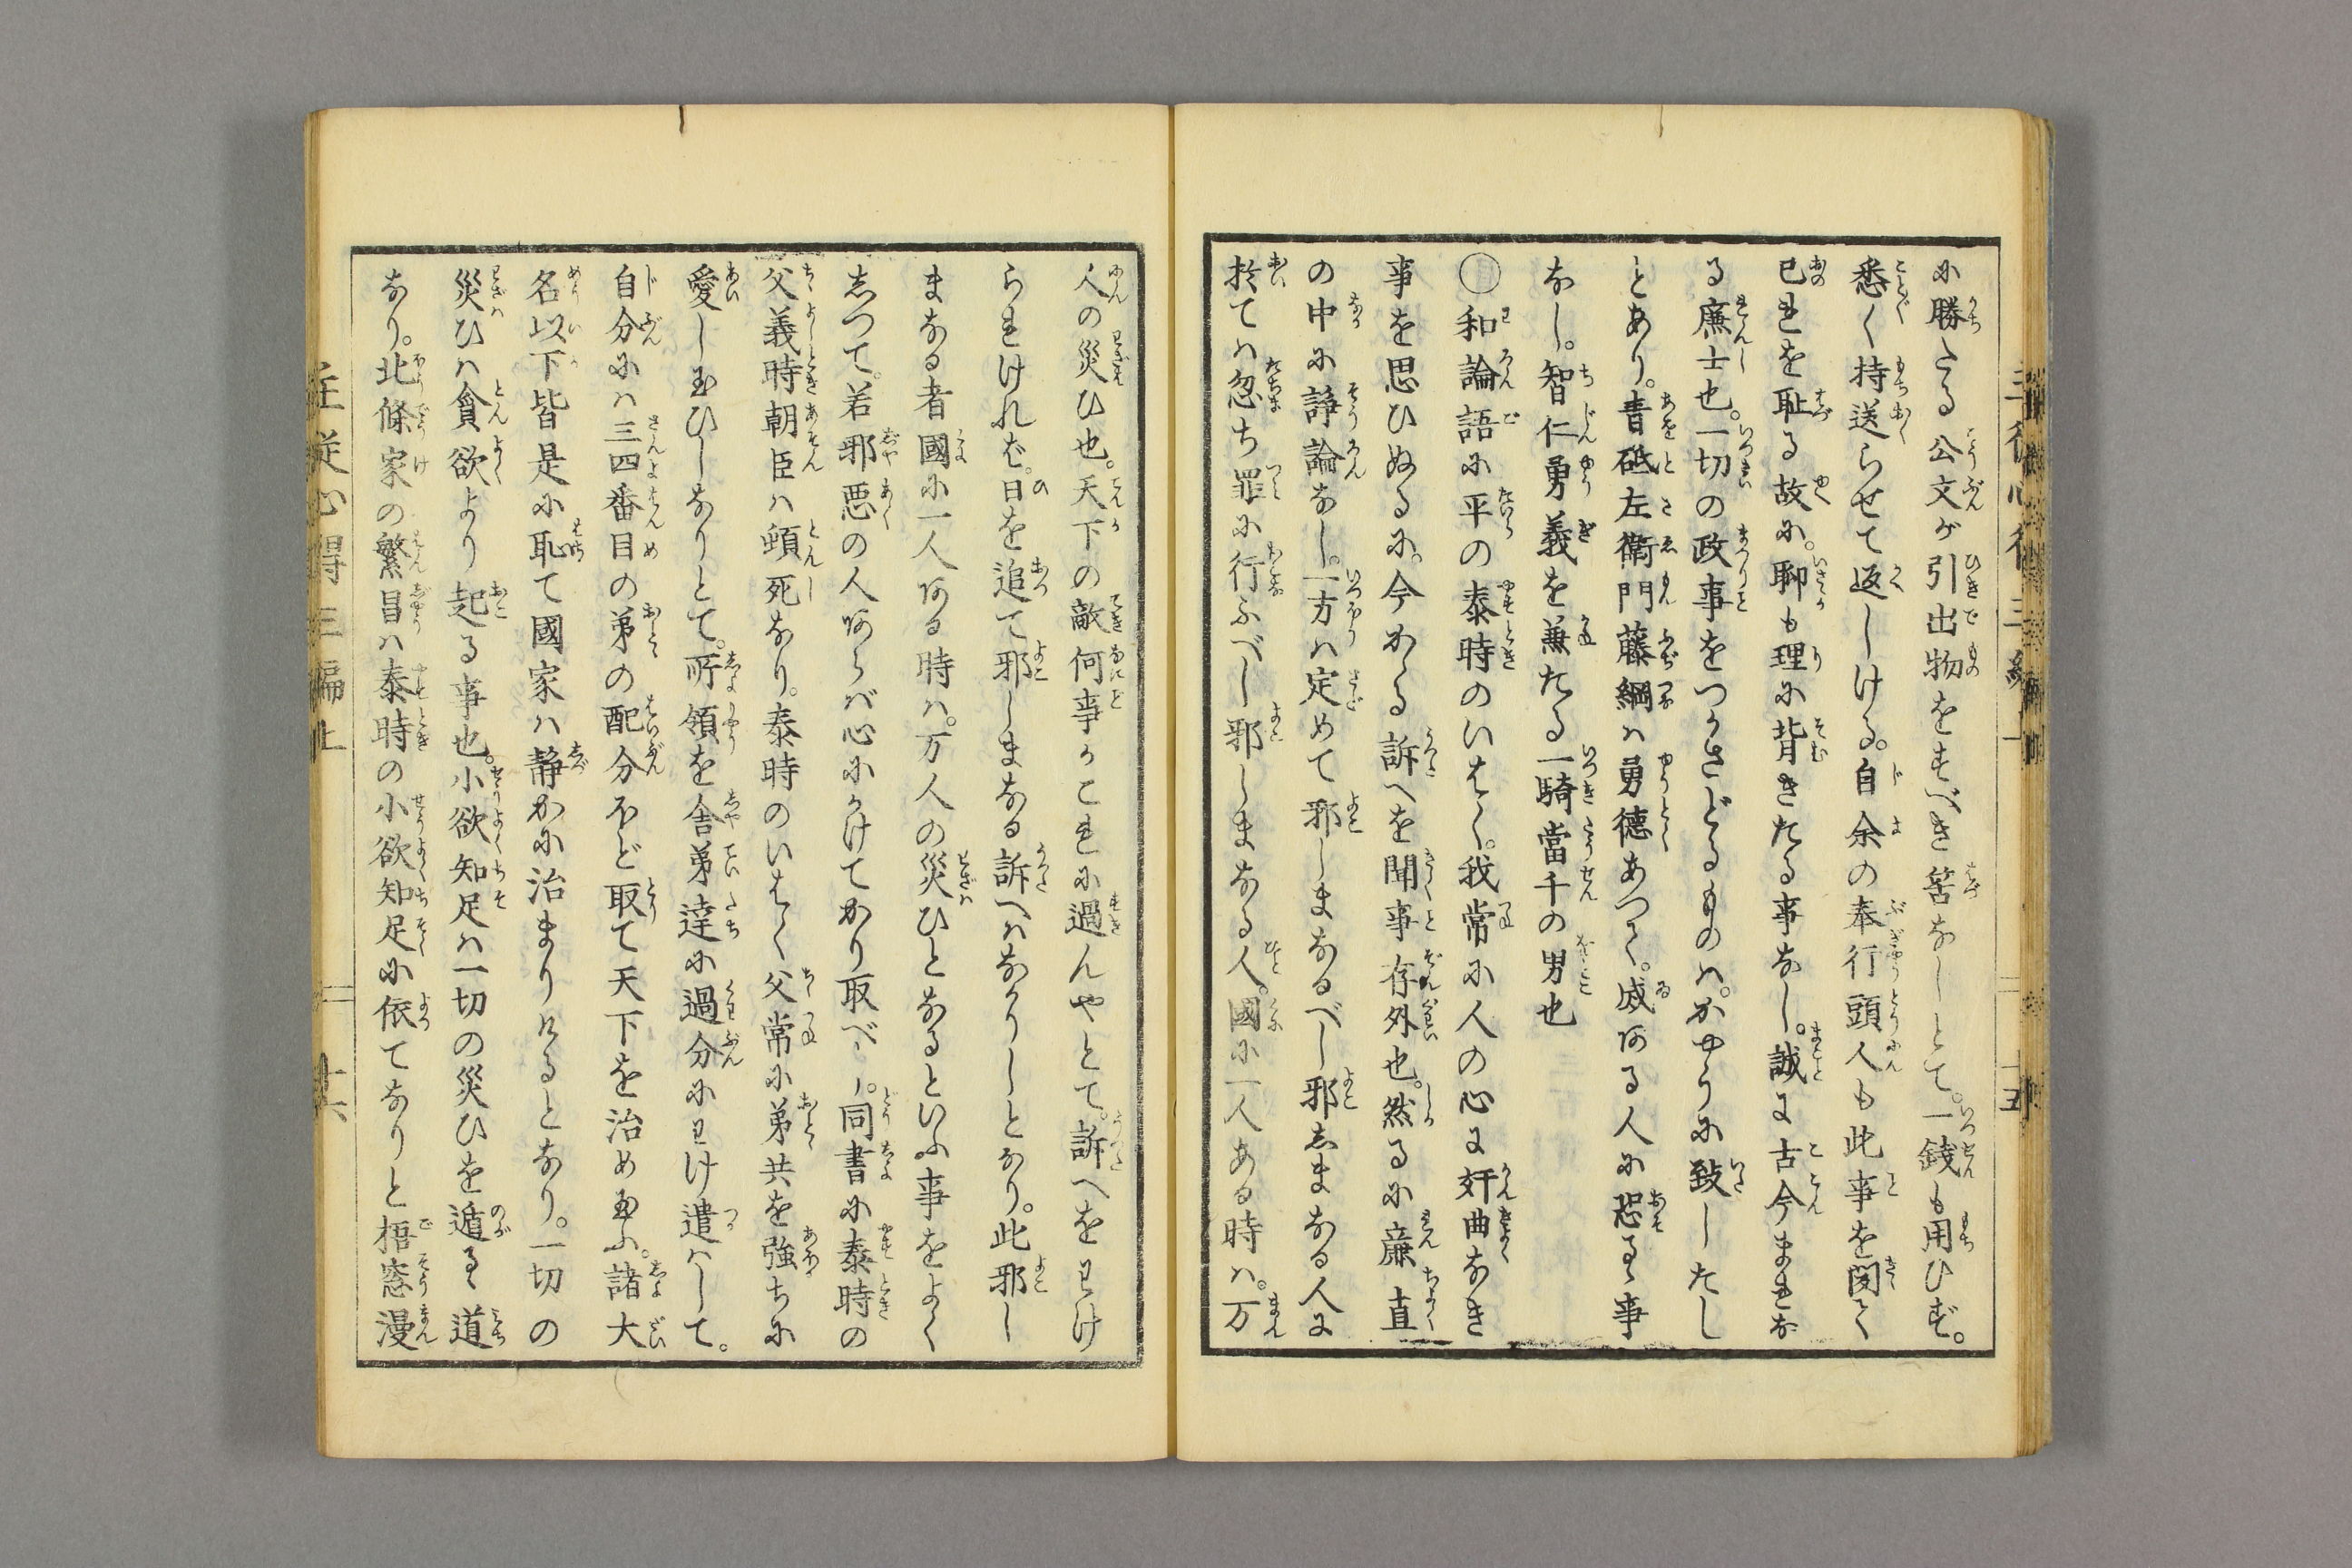 に勝たる公文が引出物をすべき筈なしとて。一銭も用ひず。
悉く持送らせて返しける。自余の奉行頭人も此事を聞て
己れを恥る故に。聊も理に背きたる事なし。誠に古今まれな
る廉士也。一切の政事をつかさどるものハ。かやうに致したし
とあり。青砥左衛門藤綱ハ勇徳あつて。威ある人に恐るゝ事
なし。智仁勇義を兼たる一騎當千の男也
〇和論語に平の泰時のいはく。我常に人の心に奸曲なき
事を思ひぬるに。今かゝる訴へを聞事存外也。然るに廉直
の中に諍論なし。一方ハ定めて邪しまなるべし邪しまなる人に
於てハ忽ち罪に行ふべし邪しまなる人。國に一人ある時ハ。万
人の災ひ也。天下の敵何事かこれに過んやとて。訴へをわけ
られけれバ。日を追て邪しまなる訴へハなかりしとなり。此邪し
まなる者國に一人ある時ハ。万人の災ひとなるといふ事をよく
しつて。若邪悪の人あらバ心にかけてかり取べし。同書に泰時の
父義時朝臣ハ頓死なり。泰時のいはく父常に弟共を強ちに
愛し玉ひしなりとて。所領を舎弟達に過分にわけ遣ハして。
自分にハ三四番目の弟の配分ほど取て天下を治め玉ふ。諸大
名以下皆是に恥て國家ハ静かに治まりけるとなり。一切の
災ひハ貪欲より起る事也。小欲知足ハ一切の災ひを遁るゝ道
なり。北條家の繁昌ハ泰時の小欲知足に依てなりと梧窓漫
主従心得三編上
十五
主従心得三編上
十六